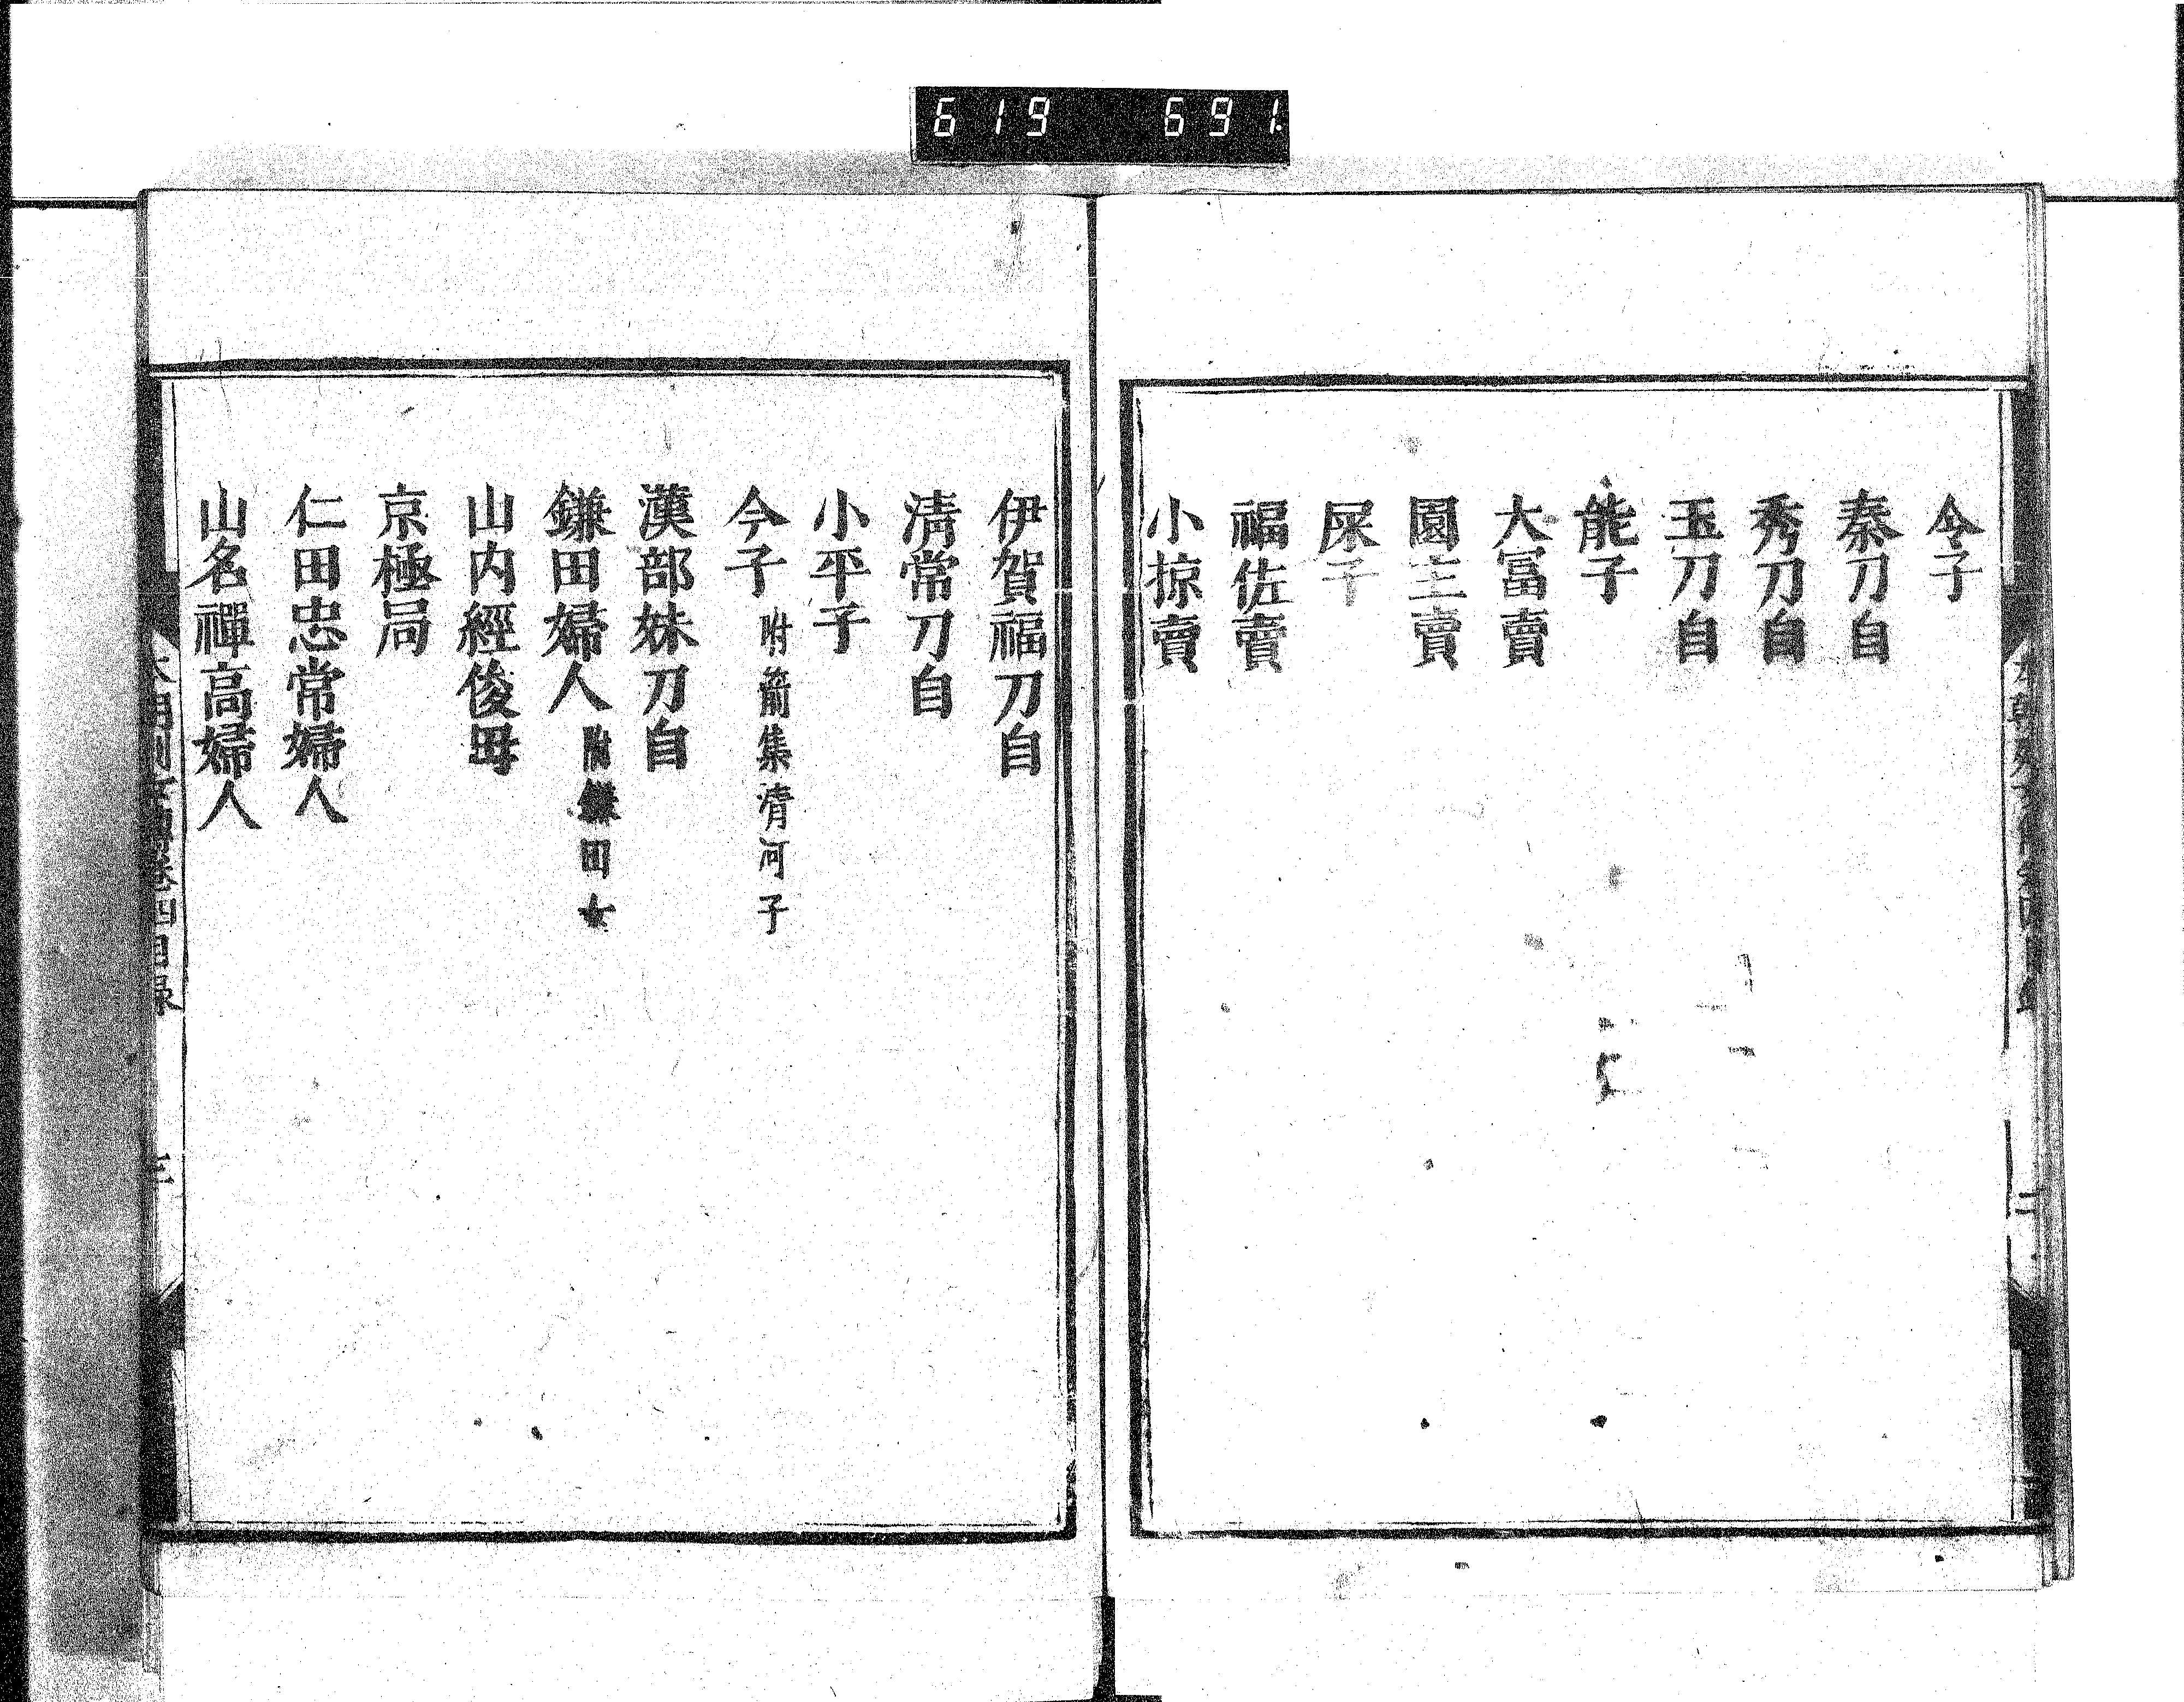 619 691
令子
秦刀自
秀刀自
玉刀自
能子
大冨賣
園主賣
屎子
福佐賣
小掠賣
伊賀福刀自
淸常刀自
小平子
今子 附箭集淸河子
漢部妹刀自
鎌田婦人 附鎌田女
山内經俊母
京極局
仁田忠常婦人
山名禪高婦人
二